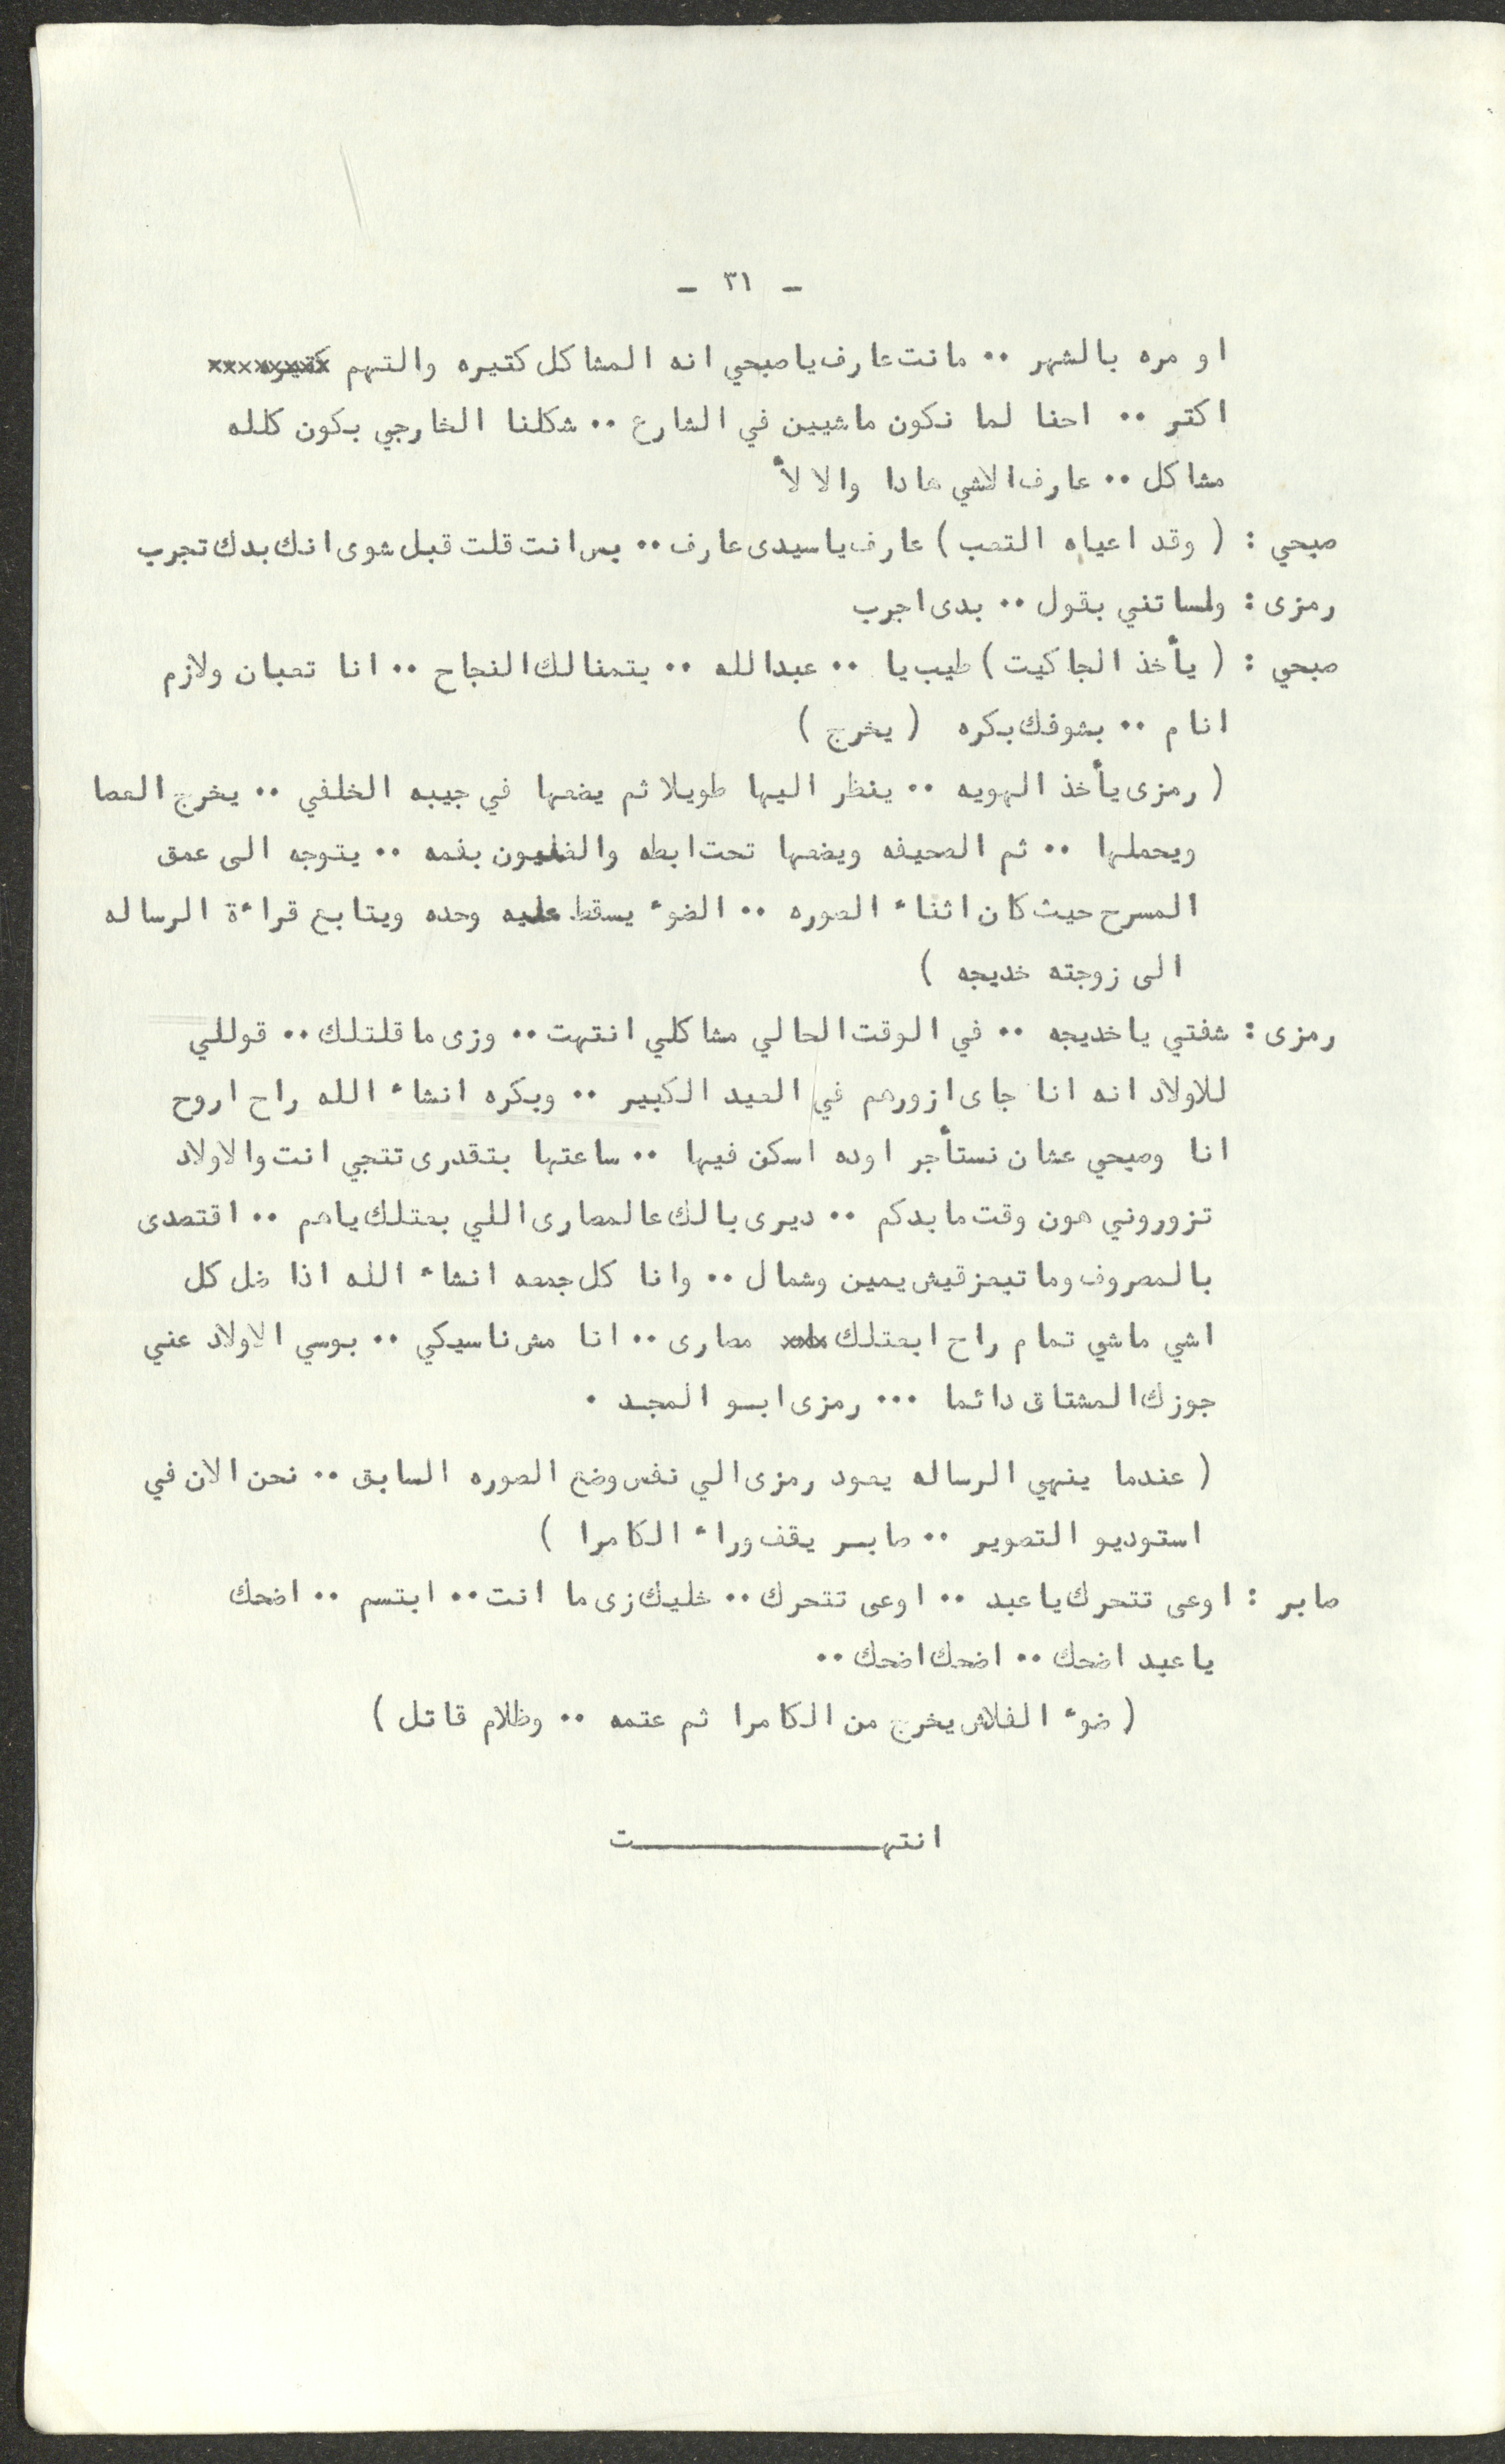 - ٣١ -
او مره بالشهر ٠٠ مانت عارف يا صبحي انه المشاكل كتيره والتهم
اكتر ٠٠ احنا لما نكون ماشيين في الشارع ٠٠ شكلنا الخارجي بكون كلله
مشاكل ٠٠ عارف الاشي هادا والا لأ
صبحي : ( وقد اعياه التعب ) عارف ياسيدى عارف ٠٠ بس انت قلت قبل شوى انك بدك تجرب
رمزى : ولساتني بقول ٠٠ بدى اجرب
صبحي : ( يأخذ الجاكيت ) طيب يا ٠٠ عبدالله ٠٠ بتمنالك النجاح ٠٠ انا تعبان ولازم
انام ٠٠ بشوفك بكره ( يخرج )
( رمزى يأخذ الهويه ٠٠ ينظر اليها طويلا ثم يضعها في جيبه الخلفي ٠٠ يخرج العصا
ويحملها ٠٠ ثم الصحيفه ويضعها تحت ابطه والغليون بفمه ٠٠ يتوجه الى عمق
المسرح حيث كان اثناء الصوره ٠٠ الضوء يسقط عليه وحده ويتابع قراءة الرساله
الى زوجته خديجه )
رمزى : شفتي يا خديجه ٠٠ في الوقت الحالي مشاكلي انتهت ٠٠ وزى ما قلتلك ٠٠ قوللي
للاولاد انه انا جاى ازورهم في العيد الكبير ٠٠ وبكره انشاء الله راح اروح
انا وصبحي عشان نستأجر اوده اسكن فيها ٠٠ ساعتها بتقدرى تتجي انت والاولاد
تزوروني هون وقت ما بدكم ٠٠ ديرى بالك عالمصارى اللي بعتلك ياهم ٠٠ اقتصدى
بالمصروف وما تبعزقيش يمين وشمال ٠٠ وانا كل جمعه انشاء الله اذا ضل كل
اشي ماشي تمام راح ابعتلك مصارى ٠٠ انا مش ناسيكي ٠٠ بوسي الاولاد عني
جوزك المشتاق دائما ٠٠٠ رمزى ابو المجد ٠
( عندما ينهي الرساله يعود رمزى الي نفس وضع الصوره السابق ٠٠ نحن الان في
استوديو التصوير ٠٠ صابر يقف وراء الكامرا )
صابر : اوعى تتحرك يا عبد ٠٠ اوعى تتحرك ٠٠ خليك زى ما انت ٠٠ ابتسم ٠٠ اضحك
يا عبد اضحك ٠٠ اضحك اضحك ٠٠
( ضوء الفلاش يخرج من الكامرا ثم عتمه ٠٠ وظلام قاتل )
انتهـــــــــــــت